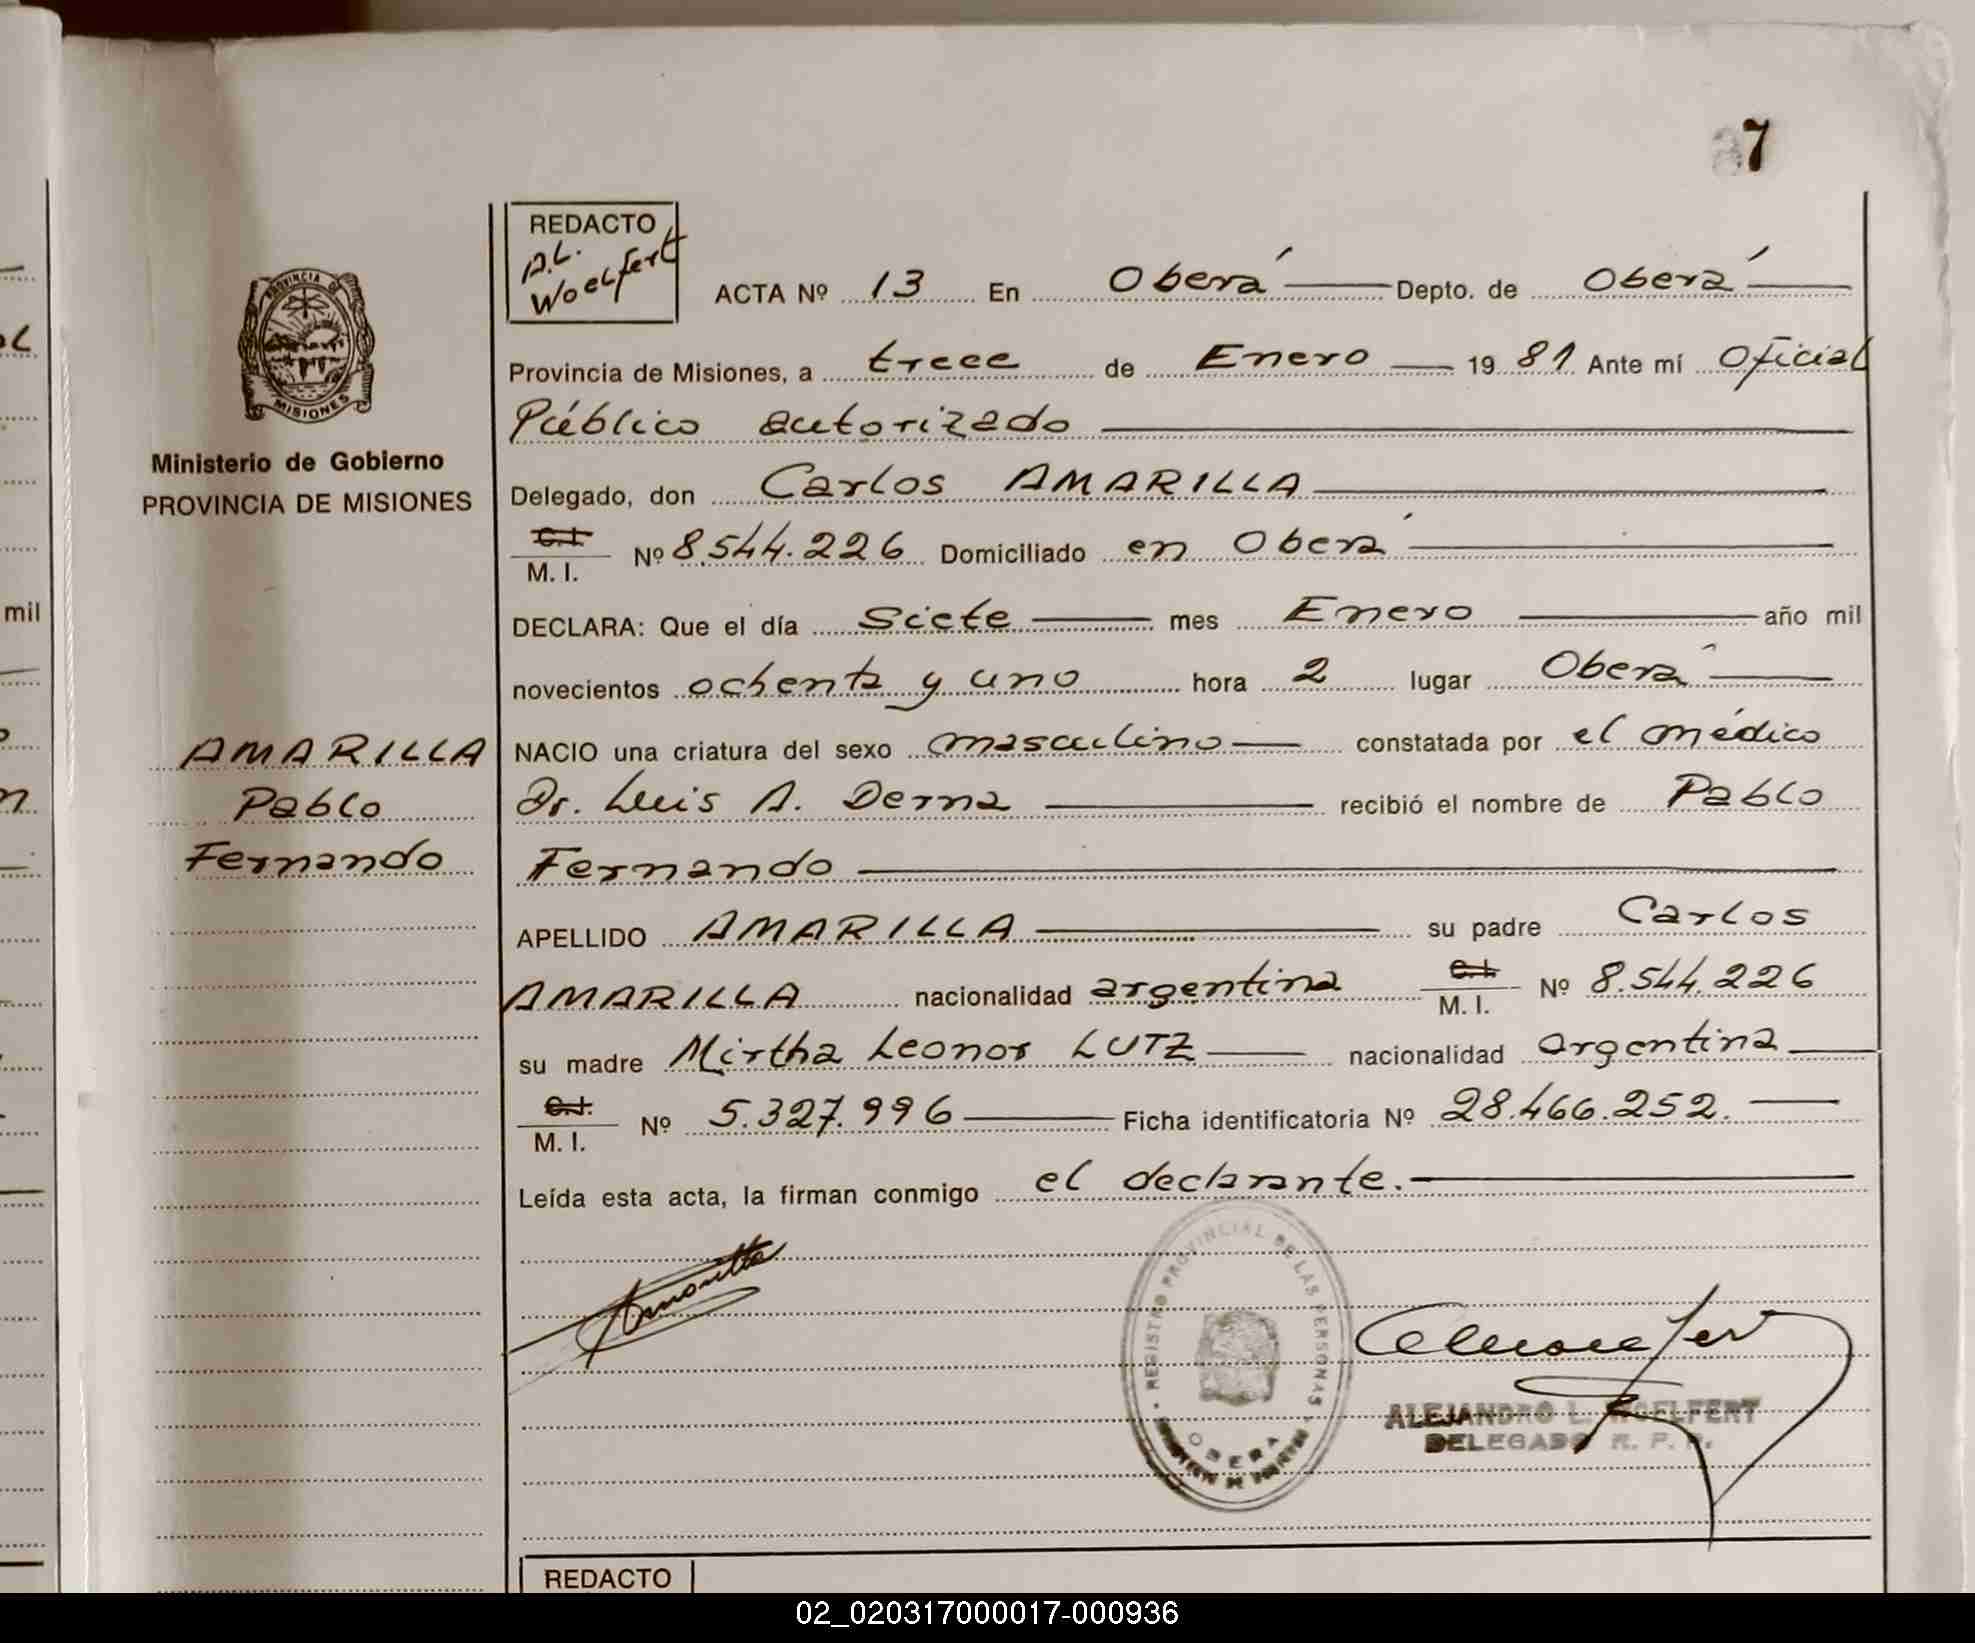 7
REDACTO
A.L.
Woelfert
ACTA Nº 13 En Oberá Depto. de Oberá
Provincia de Misiones, a trece de Enero 1981 Ante mí Oficial
Público autorizado
Delegado, don Carlos AMARILLA
C.I.
M. I. Nº 8.544.226 Domiciliado en Oberá
DECLARA: Que el día Siete mes Enero año mil
novecientos ochenta y uno hora 2 lugar Oberá
NACIO una criatura del sexo masculino constatada por el médico
Dr. Luis A. Derna recibió el nombre de Pablo
Fernando
APELLIDO AMARILLA su padre Carlos
AMARILLA nacionalidad argentina C.I. M. I. Nº 8.544.226
su madre Mirtha Leonor LUTZ nacionalidad argentina
C.I.
M. I. Nº 5.327.996 Ficha identificatoria Nº 28.466.252.
Leída esta acta, la firman conmigo el declarante.
PROVINCIA DE
MISIONES
Ministerio de Gobierno
PROVINCIA DE MISIONES
AMARILLA
Pablo
Fernando
mil
REGISTRO PROVINCIAL DE LAS PERSONAS
OBERA
ALEJANDRO L. WOELFERT
DELEGADO R. P. P.
REDACTO
02_020317000017-000936